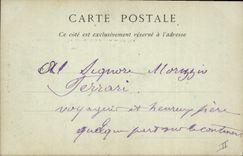 CARTE POSTALE
Ce côté est exclusivement réservé à l'adresse
Al Signore Morizzio
Ferrari
voyageur et heureux père
quelque part sur le continent
II